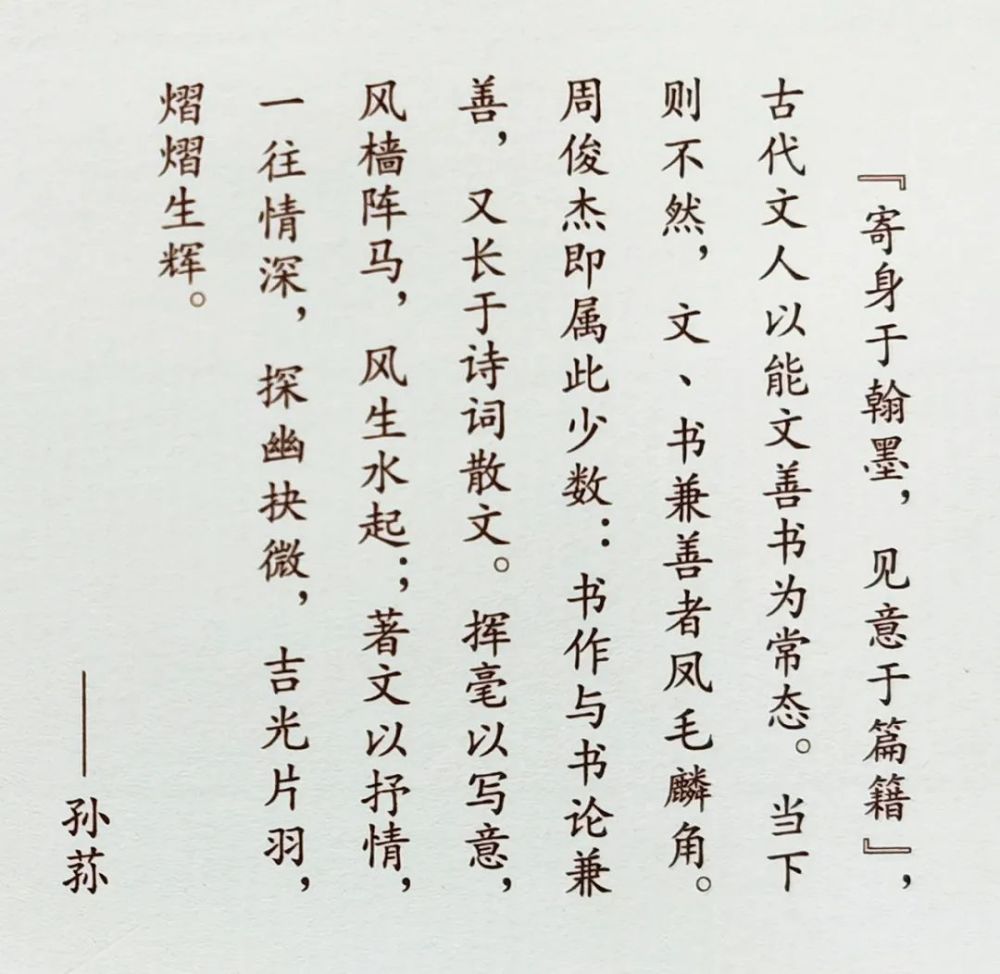 『寄身于翰墨，见意于篇籍』，
古代文人以能文善书为常态。当下
则不然，文、书兼善者凤毛麟角。
周俊杰即属此少数：书作与书论兼
善，又长于诗词散文。挥毫以写意，
风樯阵马，风生水起；著文以抒情，
一往情深，探幽抉微，吉光片羽，
熠熠生辉。
——孙荪